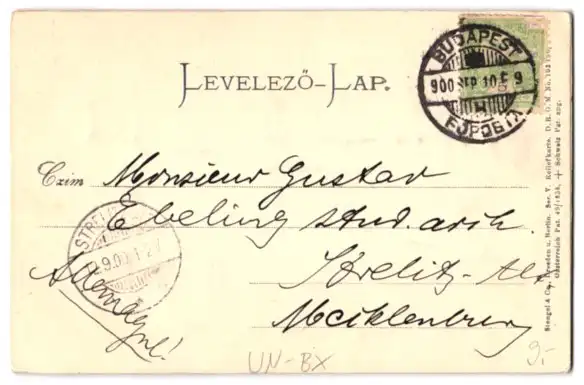 LEVELEZŐ-LAP.
BUDAPEST
900 SEP 10
Czim Monsieur Gustav
Ebeling stud. arch.
Strelitz-Alt
Mecklenburg
Allemagne!
STREL
9.00 1-2
UN-BX
9,-
Stengel & Co., Dresden u. Berlin. Ser. V. Reliefkarte. D. R. G. M.
Oesterreich Pat. 49/1858, + Schweiz Pat. ang.